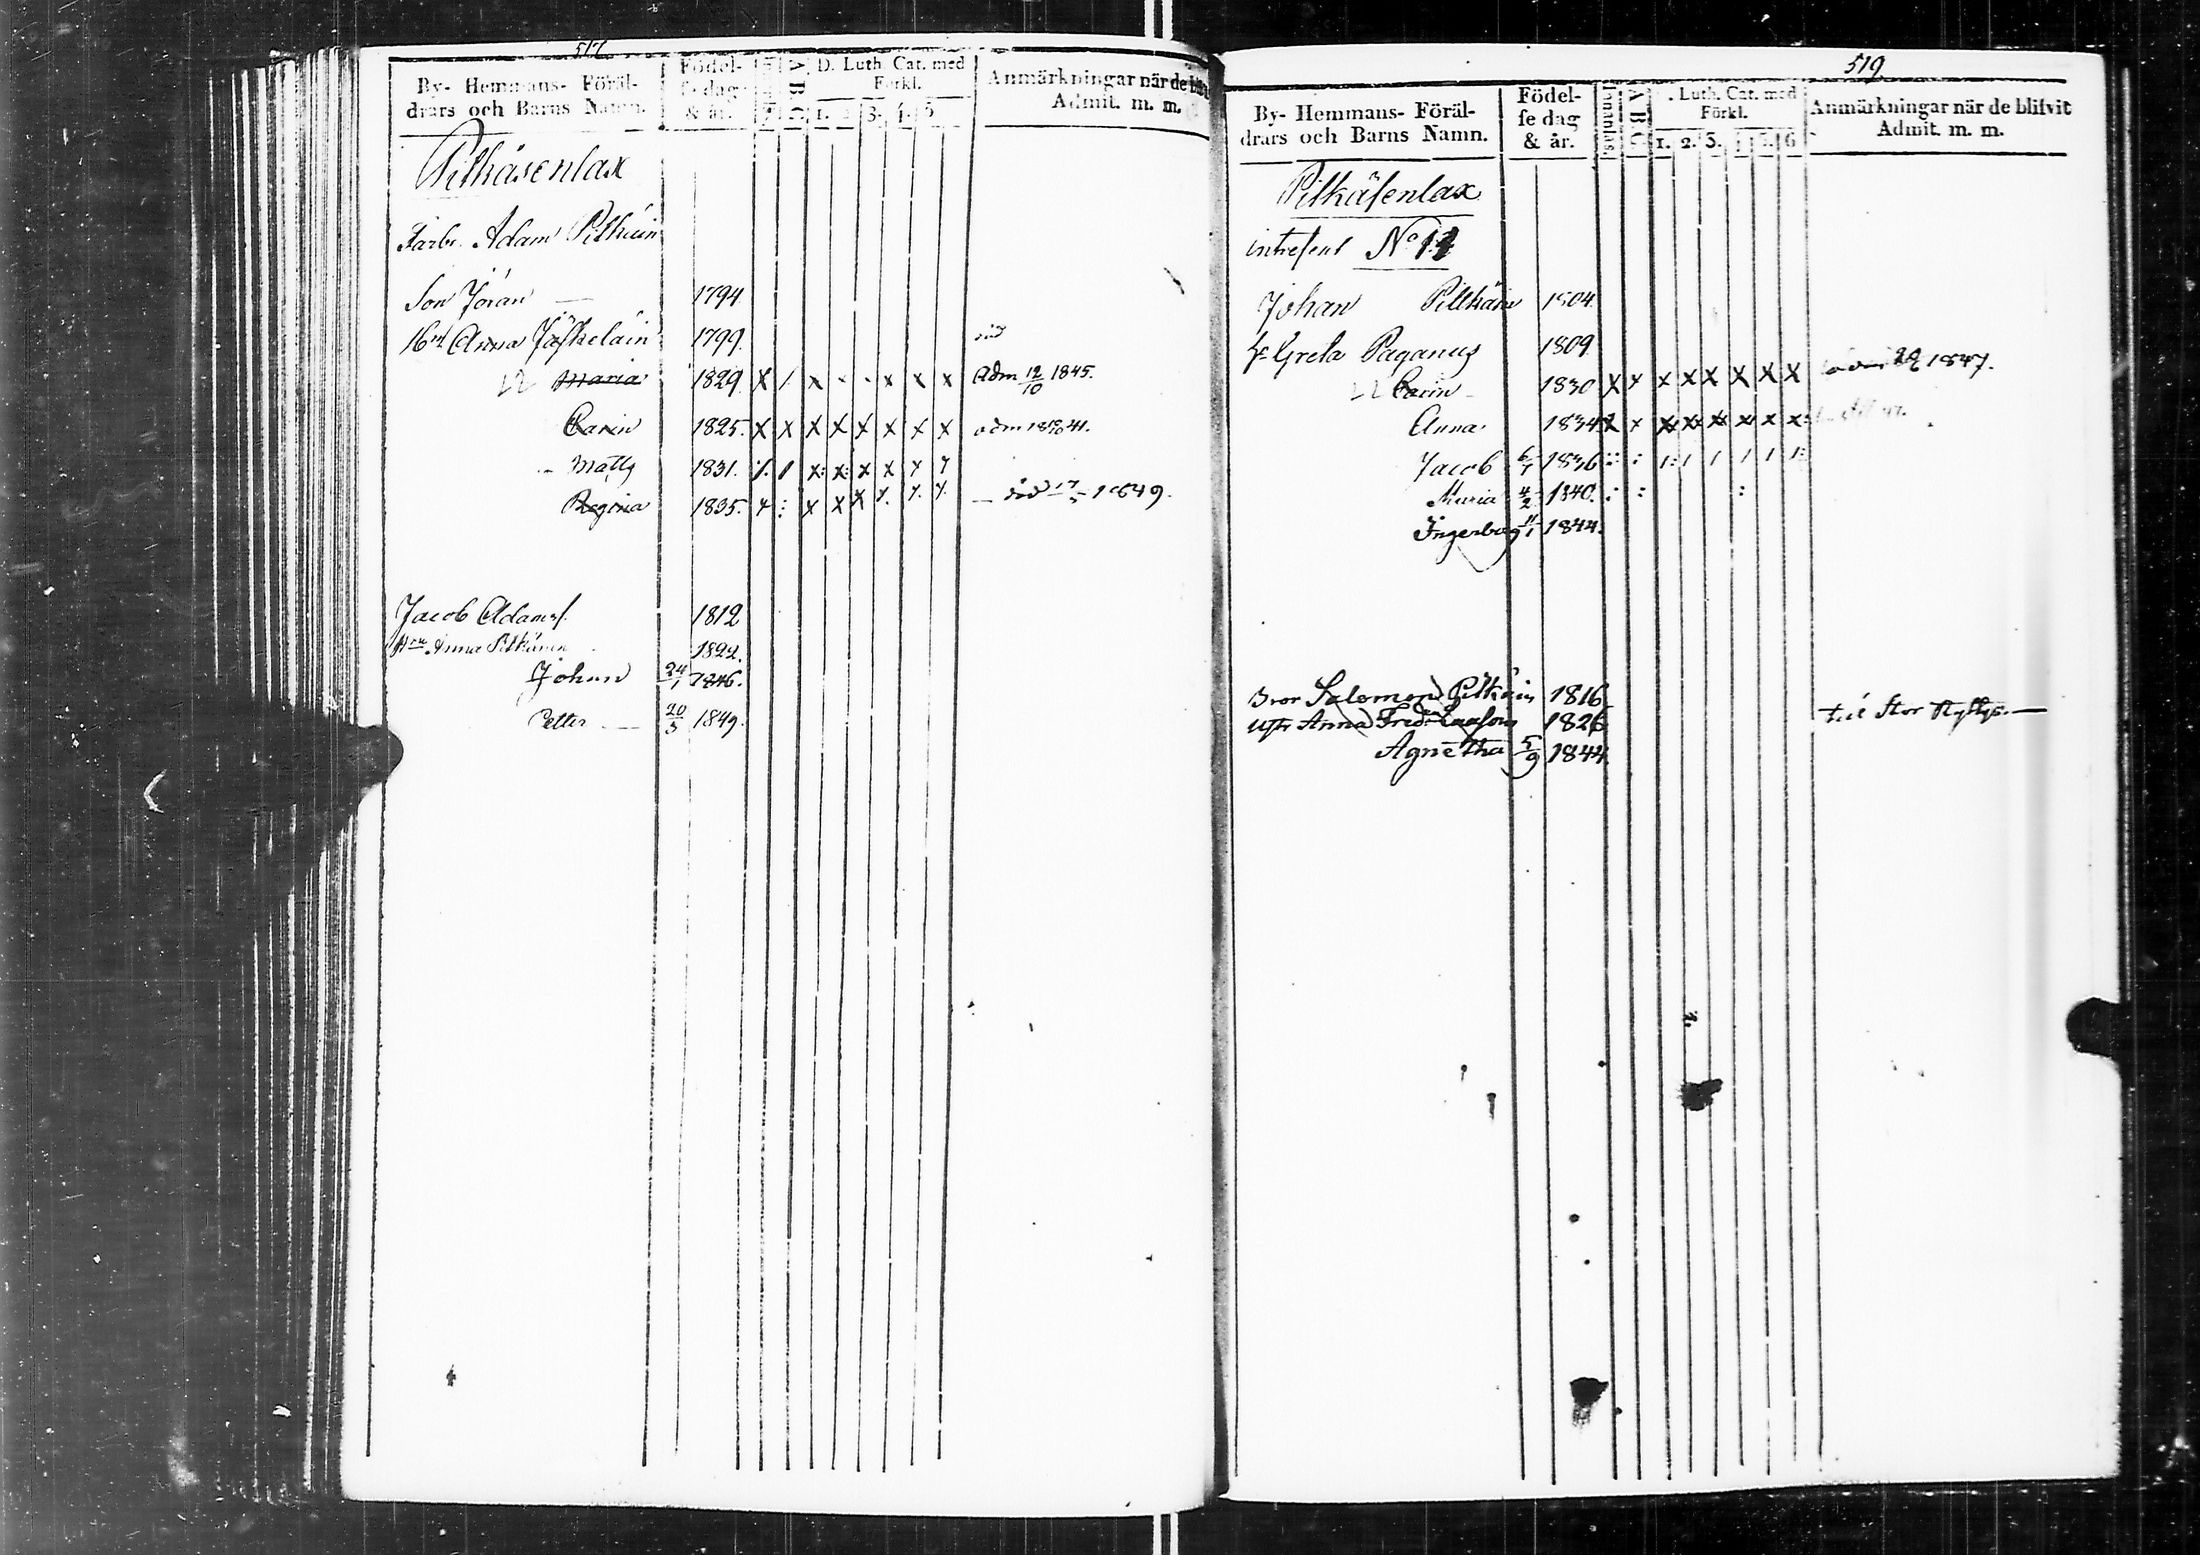 517
By- Hemmans- Föräl-
drars och Barns Namn.
Födel-
se dag
& år.
A B C
D. Luth. Cat. med
Förkl.
1. 2. 3. 4. 5
Anmärkningar när de
Admit. m. m.
Pitkäsenlax
Farbr. Adam Pitkäin
Son Jöran 1794
Anna Jäskeläin 1799.
Maria 1829 X / x - - x x x Adm 12/10 1845.
Carin 1825. X X X X X X X X adm 41.
Matts 1831.
Regina 1835. död 1849.
Jacob Adamsf. 1812
Anna Pitkänen 1822.
Johan 24/1 1846.
Petter 20/3 1849.
519
By- Hemmans- Föräl-
drars och Barns Namn.
Födel-
se dag
& år.
Innanläs.
A B C
Luth. Cat. med
Förkl.
1. 2. 3. 5. 6
Anmärkningar när de blifvit
Admit. m. m.
Pitkäsenlax
intresent No 11
Johan Pittkäin 1804.
Greta Paganus 1809
Carin 1830 X x x X X X X X 1847.
Anna 1834
Jacob 6/1 1836
Maria 4/2 1840.
Ingerborg 11/1 1844.
Bror Salomon Pitkäin 1816
Anna Fred. 1826
Agnetha 5/9 1844
till Stor